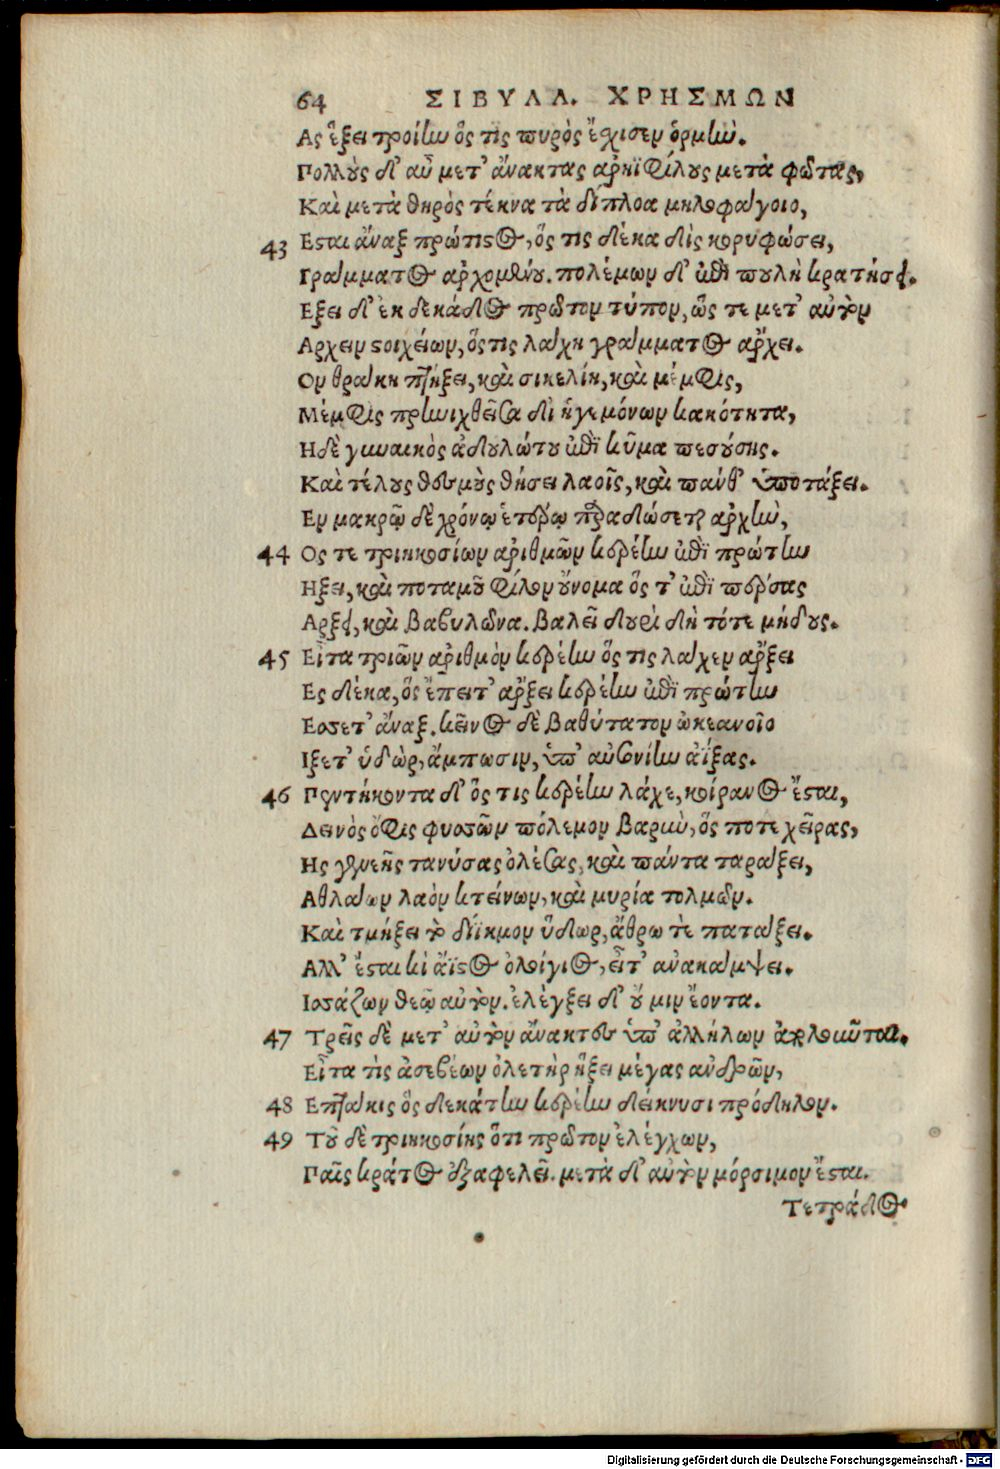 64 ΣΙΒΥΛΛ. ΧΡΗΣΜΩΝ
Ας ἥξει τροίην ὅς τις πυρὸς ἔχισεν ὁρμήν.
Πολλοὺς δ' αὖ μετ' ἄνακτας ἀρηϊφίλους μετὰ φῶτας,
Καὶ μετὰ θηρὸς τέκνα τὰ δίπλοα μηλοφάγοιο,
43 Εσται ἄναξ πρώτιστος, ὅς τις δέκα δὶς κορυφώσει,
Γράμματος ἀρχομένου. πολέμων δ' ἐπὶ πουλὴ κρατήσει.
Εξει δ' ἐκ δεκάδος πρῶτον τύπον, ὥς τε μετ' αὐτὸν
Αρχειν στοιχείων, ὅς τις λάχη γράμματος ἄρχει.
Ον θράκη πτήξει, καὶ σικελίη, καὶ μέμφις,
Μέμφις πρηνιχθεῖσα δι ἡγεμόνων κακότητα,
Ηδὲ γυναικὸς ἀδουλώτου ἐπὶ κῦμα πεσούσης.
Καὶ τέλους θεσμοὺς θήσει λαοῖς, καὶ πάνθ' ὑποτάξει.
Εν μακρῷ δὲ χρόνῳ ἑτέρῳ παραδώσεται ἀρχήν,
44 Ος τε τριηκοσίων ἀριθμῶν κερέην ἐπὶ πρώτην
Ηξει, καὶ ποταμοῦ φίλον οὔνομα ὅς τ' ἐπὶ πέρσας
Αρξει, καὶ βαβυλῶνα. βαλεῖ δουρὶ δὴ τότε μήδους.
45 Εἶτα τριῶν ἀριθμὸν κερέην ὅς τις λάχεν ἄρξει
Ες δέκα, ὅς ἔπειτ' ἄρξει κερέην ἐπὶ πρώτην
Εσσετ' ἄναξ. κεῖνος δὲ βαθύτατον ὠκεανοῖο
Ιξετ' ὑδὼρ, ἄμπωσιν, ὑπ' αὐσονίην ἀΐξας.
46 Πεντήκοντα δ' ὅς τις κερέην λάχε, κοίρανος ἔσται,
Δεινὸς ὄφις φυσσῶν πόλεμον βαρμὺ, ὅς ποτε χεῖρας,
Ης γενεῆς τανύσας ὀλέσας, καὶ πάντα ταράξει,
Αθλάων λαὸν κτείνων, καὶ μυρία τολμῶν.
Καὶ τμήξει τὸ δίϊκμον ὕδωρ, ἄθρω τὲ πατάξει.
Αλλ' ἔσται κὶ ἄϊστος ὀλοίγιος, εἶτ' ἀνακάμψει.
Ισσάζων θεῷ αὐτὸν. ἐλέγξει δ' οὔ μιν ἔοντα.
47 Τρεῖς δὲ μετ' αὐτὸν ἄνακτες ὑπ' ἀλλήλων
Εἶτα τὶς ἀσεβέων ὀλετὴρ ἥξει μέγας ἀνδρῶν,
48 Επτάκις ὃς δεκάτην κερέην δείκνυσι πρόδηλον.
49 Τοῦ δὲ τριηκοσίης ὅτι πρῶτον ἐλέγχων,
Παῖς κράτος ἐξαφελεῖ. μετὰ δ' αὐτὸν μόρσιμον ἔσται.
Τετράδος
Digitalisierung gefördert durch die Deutsche Forschungsgemeinschaft - DFG